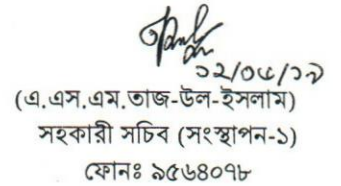 ১২/০৫/১৯
(এ.এস.এম.তাজ-উল-ইসলাম)
সহকারী সচিব (সংস্থাপন-১)
ফোনঃ ৯৫৬৪০৭৮